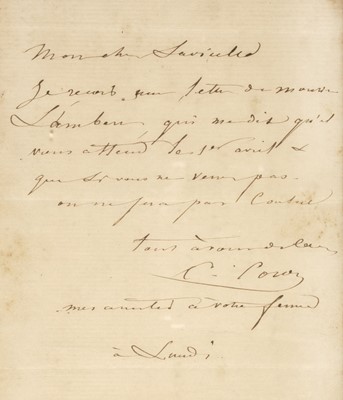 Mon cher
Je reçois une lettre de
Lambert qui me dit qu'il
vous attend le 1er avril &
que si vous ne venez pas
on ne sera pas content
tout à vous de
C. Corot
mes amitiés à votre femme
à Lundi.